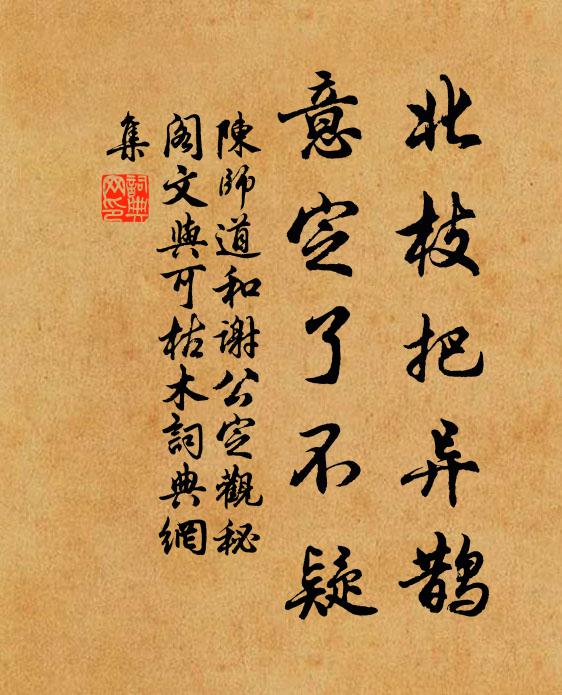 北枝把异鹊
意定了不疑
陳師道和谢公定觀秘
阁文與可枯木詞典網
集
詞典网印